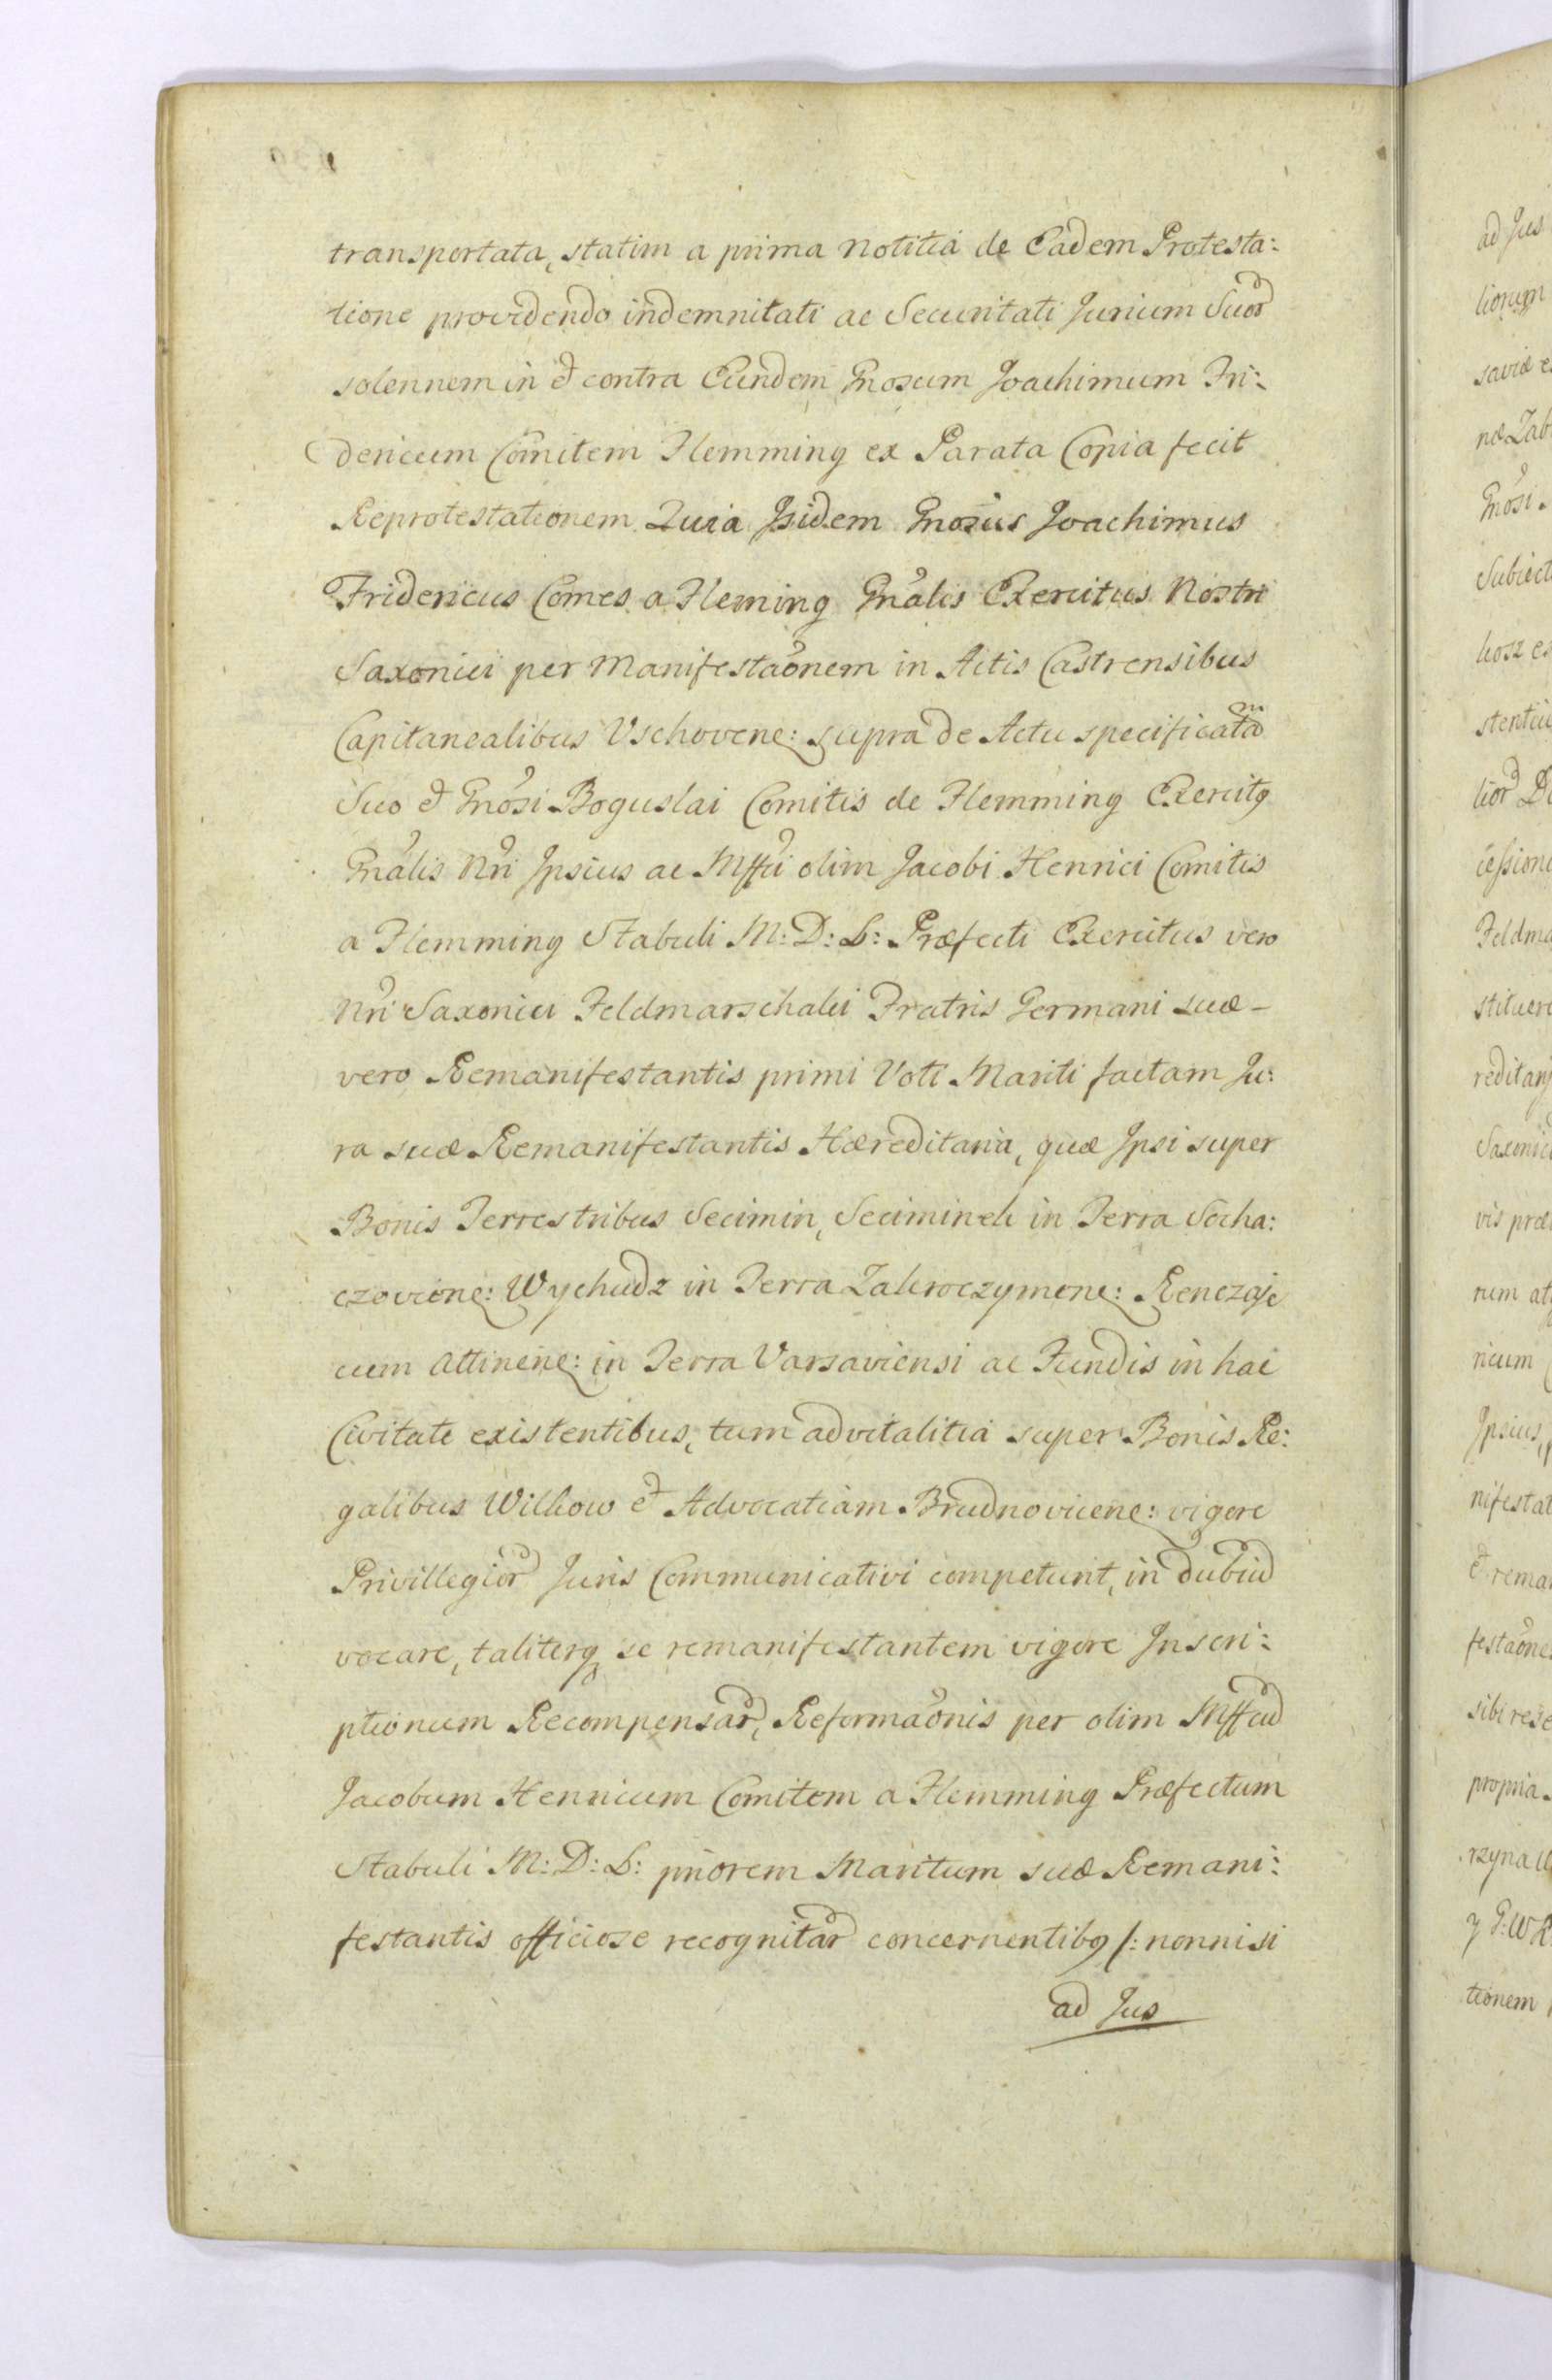 transportata, statim a prima notitia de Eadem Protesta:
tione providendo indemnitati ac Securitati Jurium Suor
solennem in et contra Eundem Gnosum Joachimum Fri:
dericum Comitem Flemming ex Parata Copia fecit
Reprotestationem Quia Isidem Gnosus Joachimus
Fridericus Comes a Fleming Gnalis Exercitus Nostri
Saxonici per Manifestaonem in Actis Castrensibus
Capitanealibus Vschovene: supra de Actu specificata
Suo et Gnosi Boguslai Comitis de Flemming Exercitq
Gnalis Nri Ipsius ac Mffci olim Jacobi Henrici Comitis
a Flemming Stabuli M: D: L: Præfecti Exercitus vero
Nri Saxonici Feldmarschalci Fratris Germani suæ-
vero Remanifestantis primi Voti Mariti factam Ju:
ra suæ Remanifestantis Hæreditaria, quæ Ipsi super
Bonis Terrestribus Secimin, Secimineck in Terra Socha:
czoviene: Wychudz in Terra Zakroczymene: Renczaje
cum Attinene: in Terra Varsaviensi ac Fundis in hac
Civitate existentibus, tum advitalitia super Bonis Re:
galibus Wilkow et Advocatiam Brudnoviene: vigore
Privillegior Juris Communicativi competunt, in dubiu
vocare, taliterq se remanifestantem vigore Inscri:
ptionum Recompensar, Reformaonis per olim Mffcu
Jacobum Henricum Comitem a Flemming Præfectum
Stabuli M: D: L: priorem Maritum suæ Remani:
festantis officiose recognitar concernentibq /: nonnisi
ad Jus
ad Jus
liorum
saviæ
næ Zab
Gnosi
Subiect
kosz
stentiu
lior
cessione
Feldma
stituere
reditari
Saxonici
vis præ
rum
ricum
Ipsius,
nifestat
et reman
festaone
sibi rese
propria
rzyna
y P: W
tionem